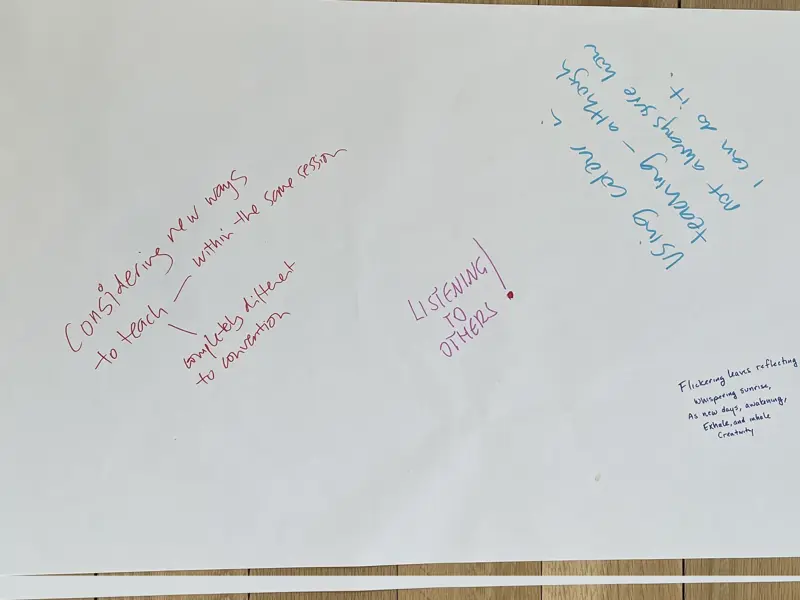 Considering new ways
to teach — within the same session
completely different
to convention
LISTENING
TO
OTHERS!
Using colour in
teaching - although
not always sure how
I can do it.
Flickering leaves reflecting
whispering sunrise,
As new days, awakening,
Exhale, and inhale
Creativity